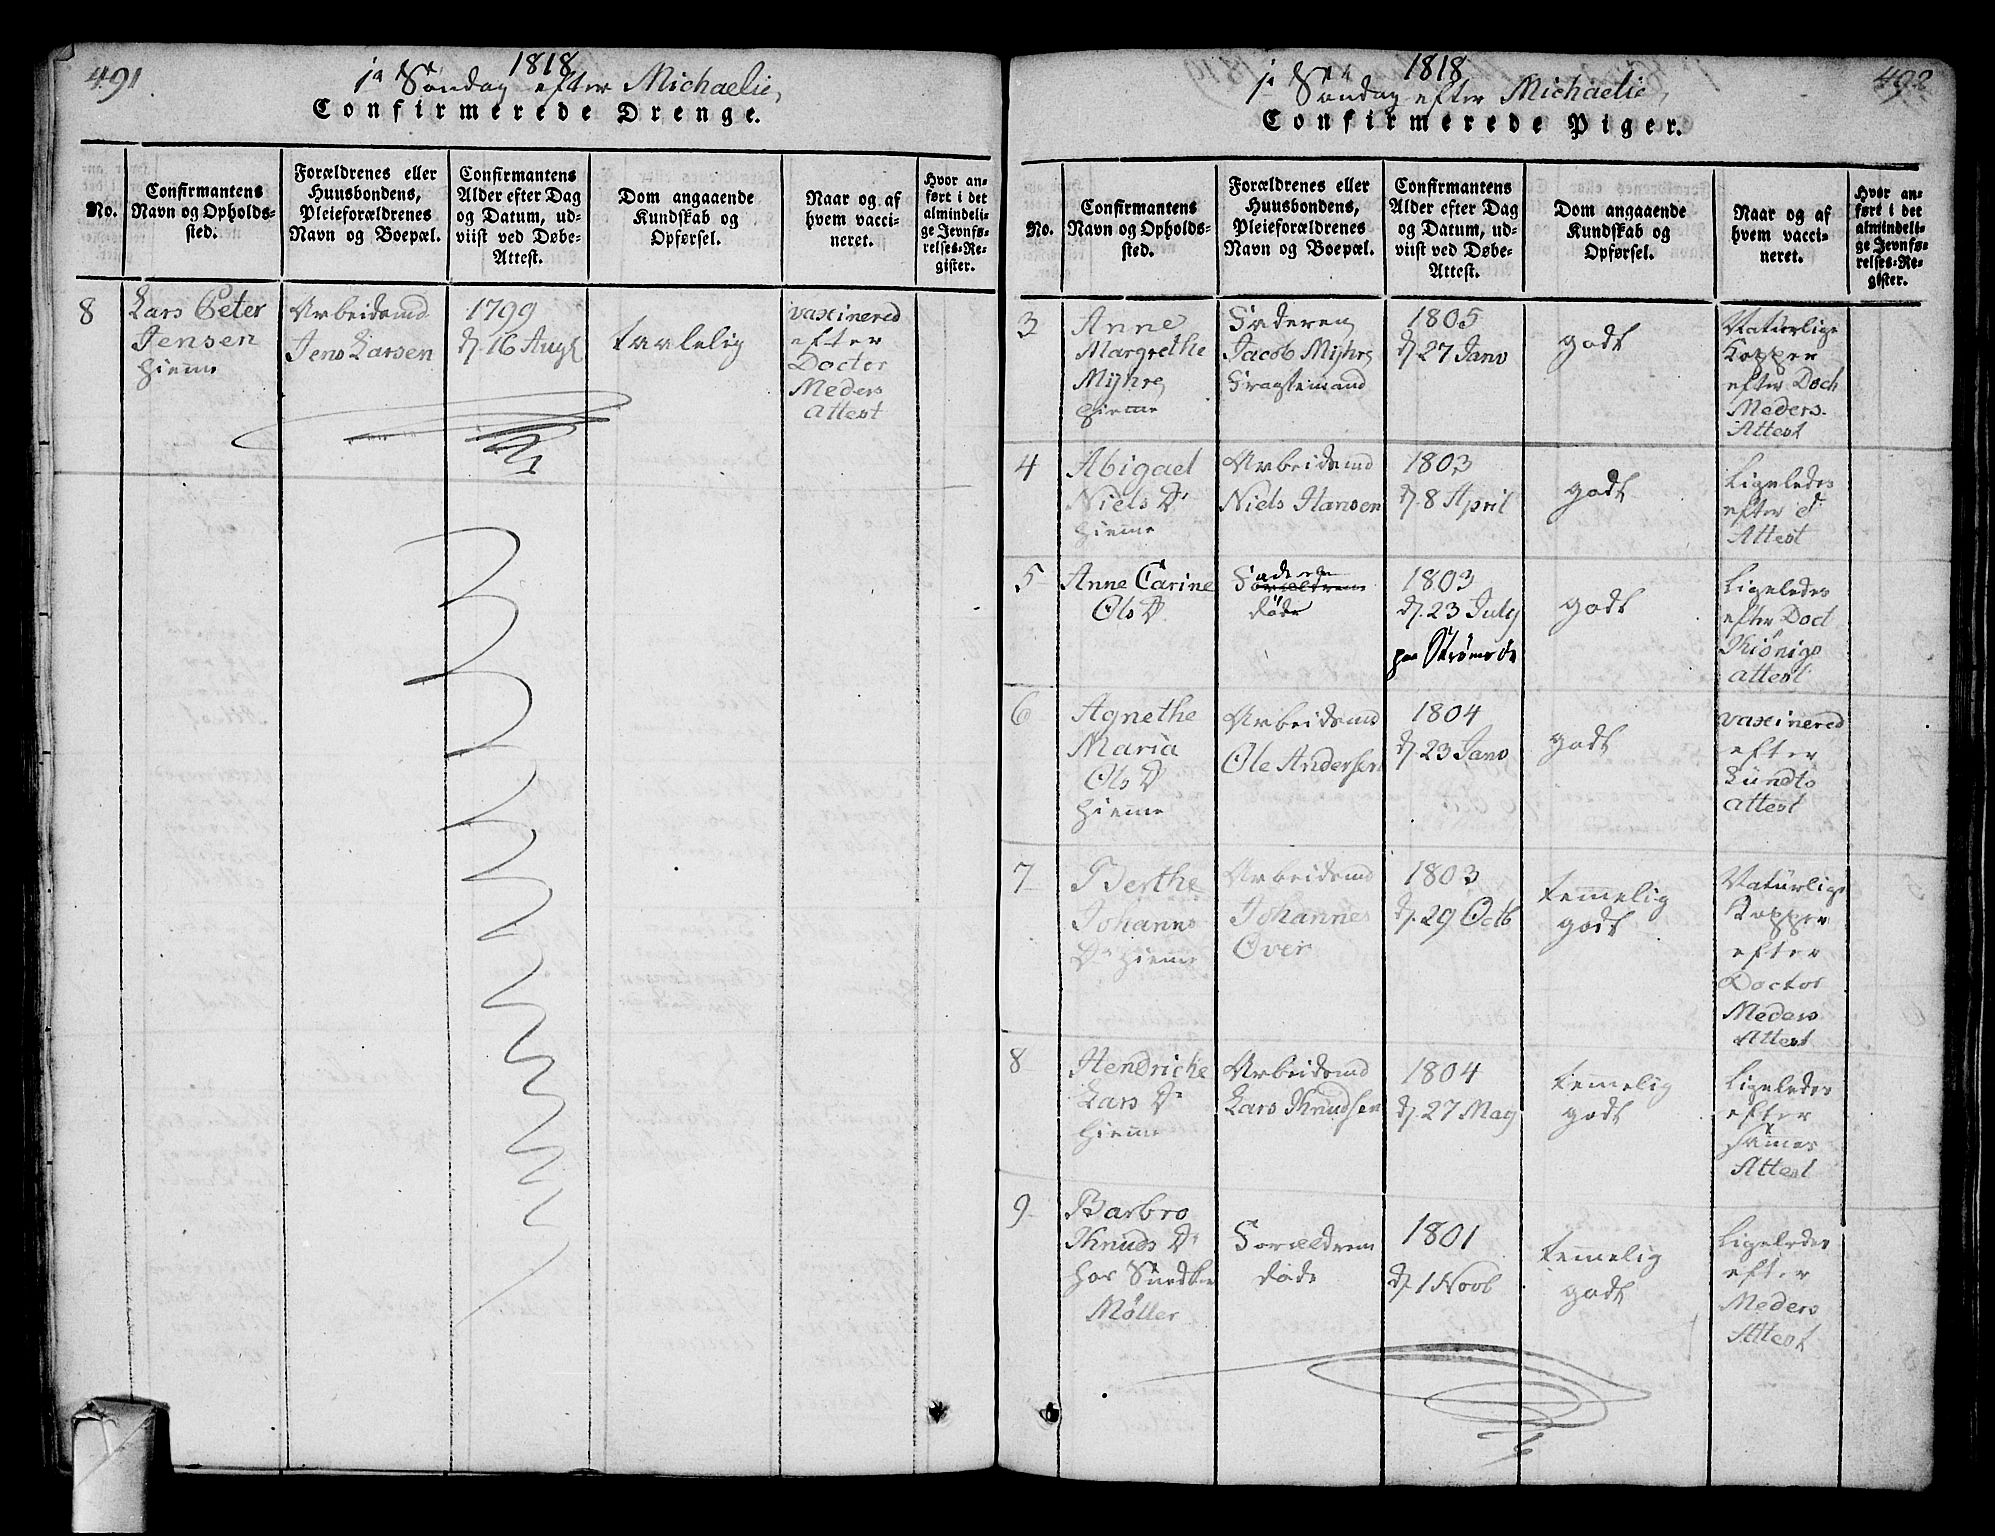 491
1818
1ª Søndag efter Michaelie,
Confirmerede Drenge.
No.
Confirmantens
Navn og Opholds-
sted.
Forældrenes eller
Huusbondens,
Pleieforældrenes
Navn og Boepæl.
Confirmantens
Alder efter Dag
og Datum, ud-
viist ved Døbe-
Attest.
Dom angaaende
Kundskab og
Opførsel.
Naar og af
hvem vacci-
neret.
Hvor an-
ført i det
almindeli-
ge Jevnfø-
relses-Re-
gister.
8
Lars Peter
Jensen
hiemme
Arbeidsmd
Jens Larsen
1799
d. 16 Augs
taalelig
vaxinered
efter
Docter
Meders
attest
492
1818
1ª Søndag efter Michaelie,
Confirmerede Piger.
No.
Confirmantens
Navn og Opholds-
sted.
Forældrenes eller
Huusbondens,
Pleieforældrenes
Navn og Boepæl.
Confirmantens
Alder efter Dag
og Datum, ud-
viist ved Døbe-
Attest.
Dom angaaende
Kundskab og
Opførsel.
Naar og af
hvem vacci-
neret.
Hvor an-
ført i det
almindelig-
ge Jevnfø-
relses-Re-
gister.
3
Anne
Margrethe
Myhre
hiemme
Faderen
Jacob Myhre
Fragtemand
1805
d. 27 Janv
godt
Naturlige
Kopper
efter Doct
Meders
Attest
4
Abigael
Niels Dr
hiemme
Arbeidsmd
Niels Hansen
1803
d. 8 April
godt
Ligeledes
efter d
Attest
5
Anne Carine
Ols Dr
Faderen
døde
1803
d. 23 July
paa Strømsøe
godt
Ligeledes
efter Doct
Kiönigs
attest
6
Agnethe
Maria
Ols Dr
hiemme
Arbeidsmd
Ole Andersen
1804
d. 23 Janv
godt
vaxinered
efter
Lundts
attest
7
Berthe
Johanns
Dr hiemme
Arbeidsmd
Johannes
Over
1803
d. 29 Octb
temmelig
godt
Naturlige
Kopper
efter
Doctor
Meders
Attest
8
Hendriche
Lars Dr
hiemme
Arbeidsmd
Lars Knudsen
1804
d. 27 May
temmelig
godt
Ligeledes
efter
sammes
Attest
9
Barbro
Knuds Dr
hos Snedker
Møller
Forældrene
døde
1801
d. 1 Novb
temmelig
godt
Ligeledes
efter
Meders
Attest